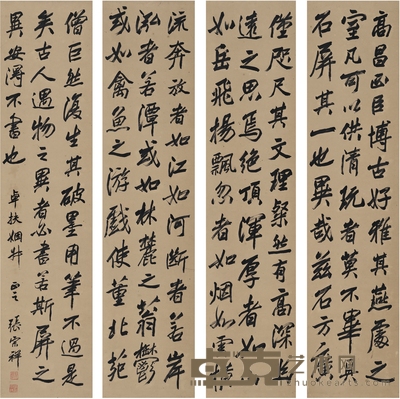 高昌正臣博古好雅其燕處之
室凡可以供清玩者莫不
石屏其一也異哉兹石方
僅咫尺其文理粲然有高深
遠之思焉絶頂渾厚者如
如岳飛揚飄忽者如烟如雲橫
流奔放者如江如河斷者若岸
泓者若潭或如林麓之蓊鬱
或如禽魚之游戲使董北苑
僧巨然復生其破墨用筆不過是
矣古人遇物之異者必書若斯屏之
異安得不書也
卓扶姻 正之 張宗祥